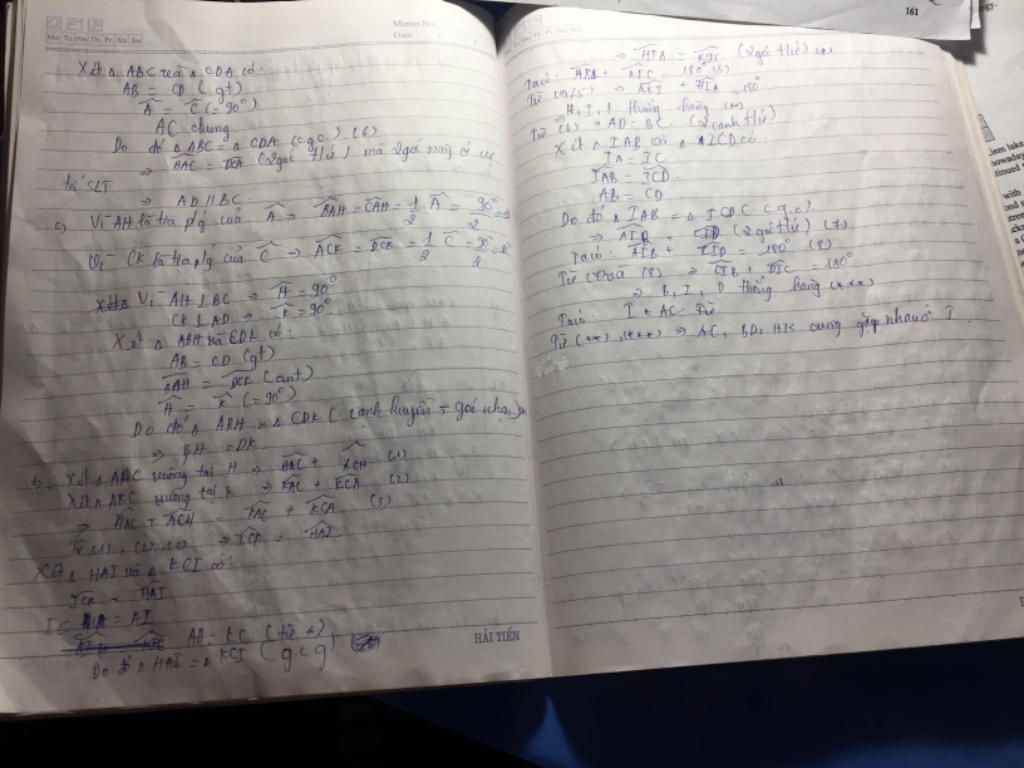 Memo No.
Date / /
Mo Tu We Th Fr Sa Su
Xét Δ ABC và Δ CDA có:
AB = CD (gt)
Â = Ĉ (= 90°)
AC chung
Do đó Δ ABC = Δ CDA (c.g.c.) (6)
⇒ BAC = DCA (2 góc t/ứ) mà 2 góc này ở vị
trí SLT
⇒ AD // BC.
c) Vì AH là tia p/g của Â ⇒ BAH = CAH = 1/2 Â = 90°/2
Vì CK là tia p/g của Ĉ ⇒ ACK = DCK = 1/2 Ĉ = 90°/2
Vì AH ⊥ BC ⇒ Ĥ = 90°
CK ⊥ AD ⇒ K̂ = 90°
Xét Δ ABH và CDK có:
AB = CD (gt)
BAH = DCK (cmt)
Ĥ = K̂ (= 90°)
Do đó Δ ABH = Δ CDK (cạnh huyền - góc nhọn)
⇒ BH = DK
d) Xét Δ AHC vuông tại H ⇒ HAC + ACH (1)
Xét Δ AKC vuông tại K ⇒ KAC + KCA (2)
⇒ HAC + ACH = KAC + KCA (3)
Từ (1), (2), (3) ⇒ ICK = HAI
Xét Δ HAI và Δ KCI có:
ICK = HAI
IC = AI
AH = KC (từ *)
Do đó Δ HAI = Δ KCI (g.c.g)
HẢI TIẾN
161
⇒ HIA = KIC (2 góc t/ứ) (4)
Ta có: + KIC = 180° (5)
Từ (4), (5) ⇒ + HIA = 180°
⇒ H, I, K thẳng hàng (**)
Từ (6) ⇒ AD = BC (2 cạnh t/ứ)
Xét Δ IAB và Δ ICD có
IA = IC
IAB = ICD
AB = CD
Do đó Δ IAB = Δ ICD (c.g.c)
⇒ (2 góc t/ứ) (7)
Ta có: AIB + = 180° (8)
Từ (7) và (8) ⇒ CIB + DIC = 180°
⇒ B, I, D thẳng hàng (***)
Ta có: I ∈ AC
Từ (**), (***) ⇒ AC, BD, HK cùng gặp nhau ở I.